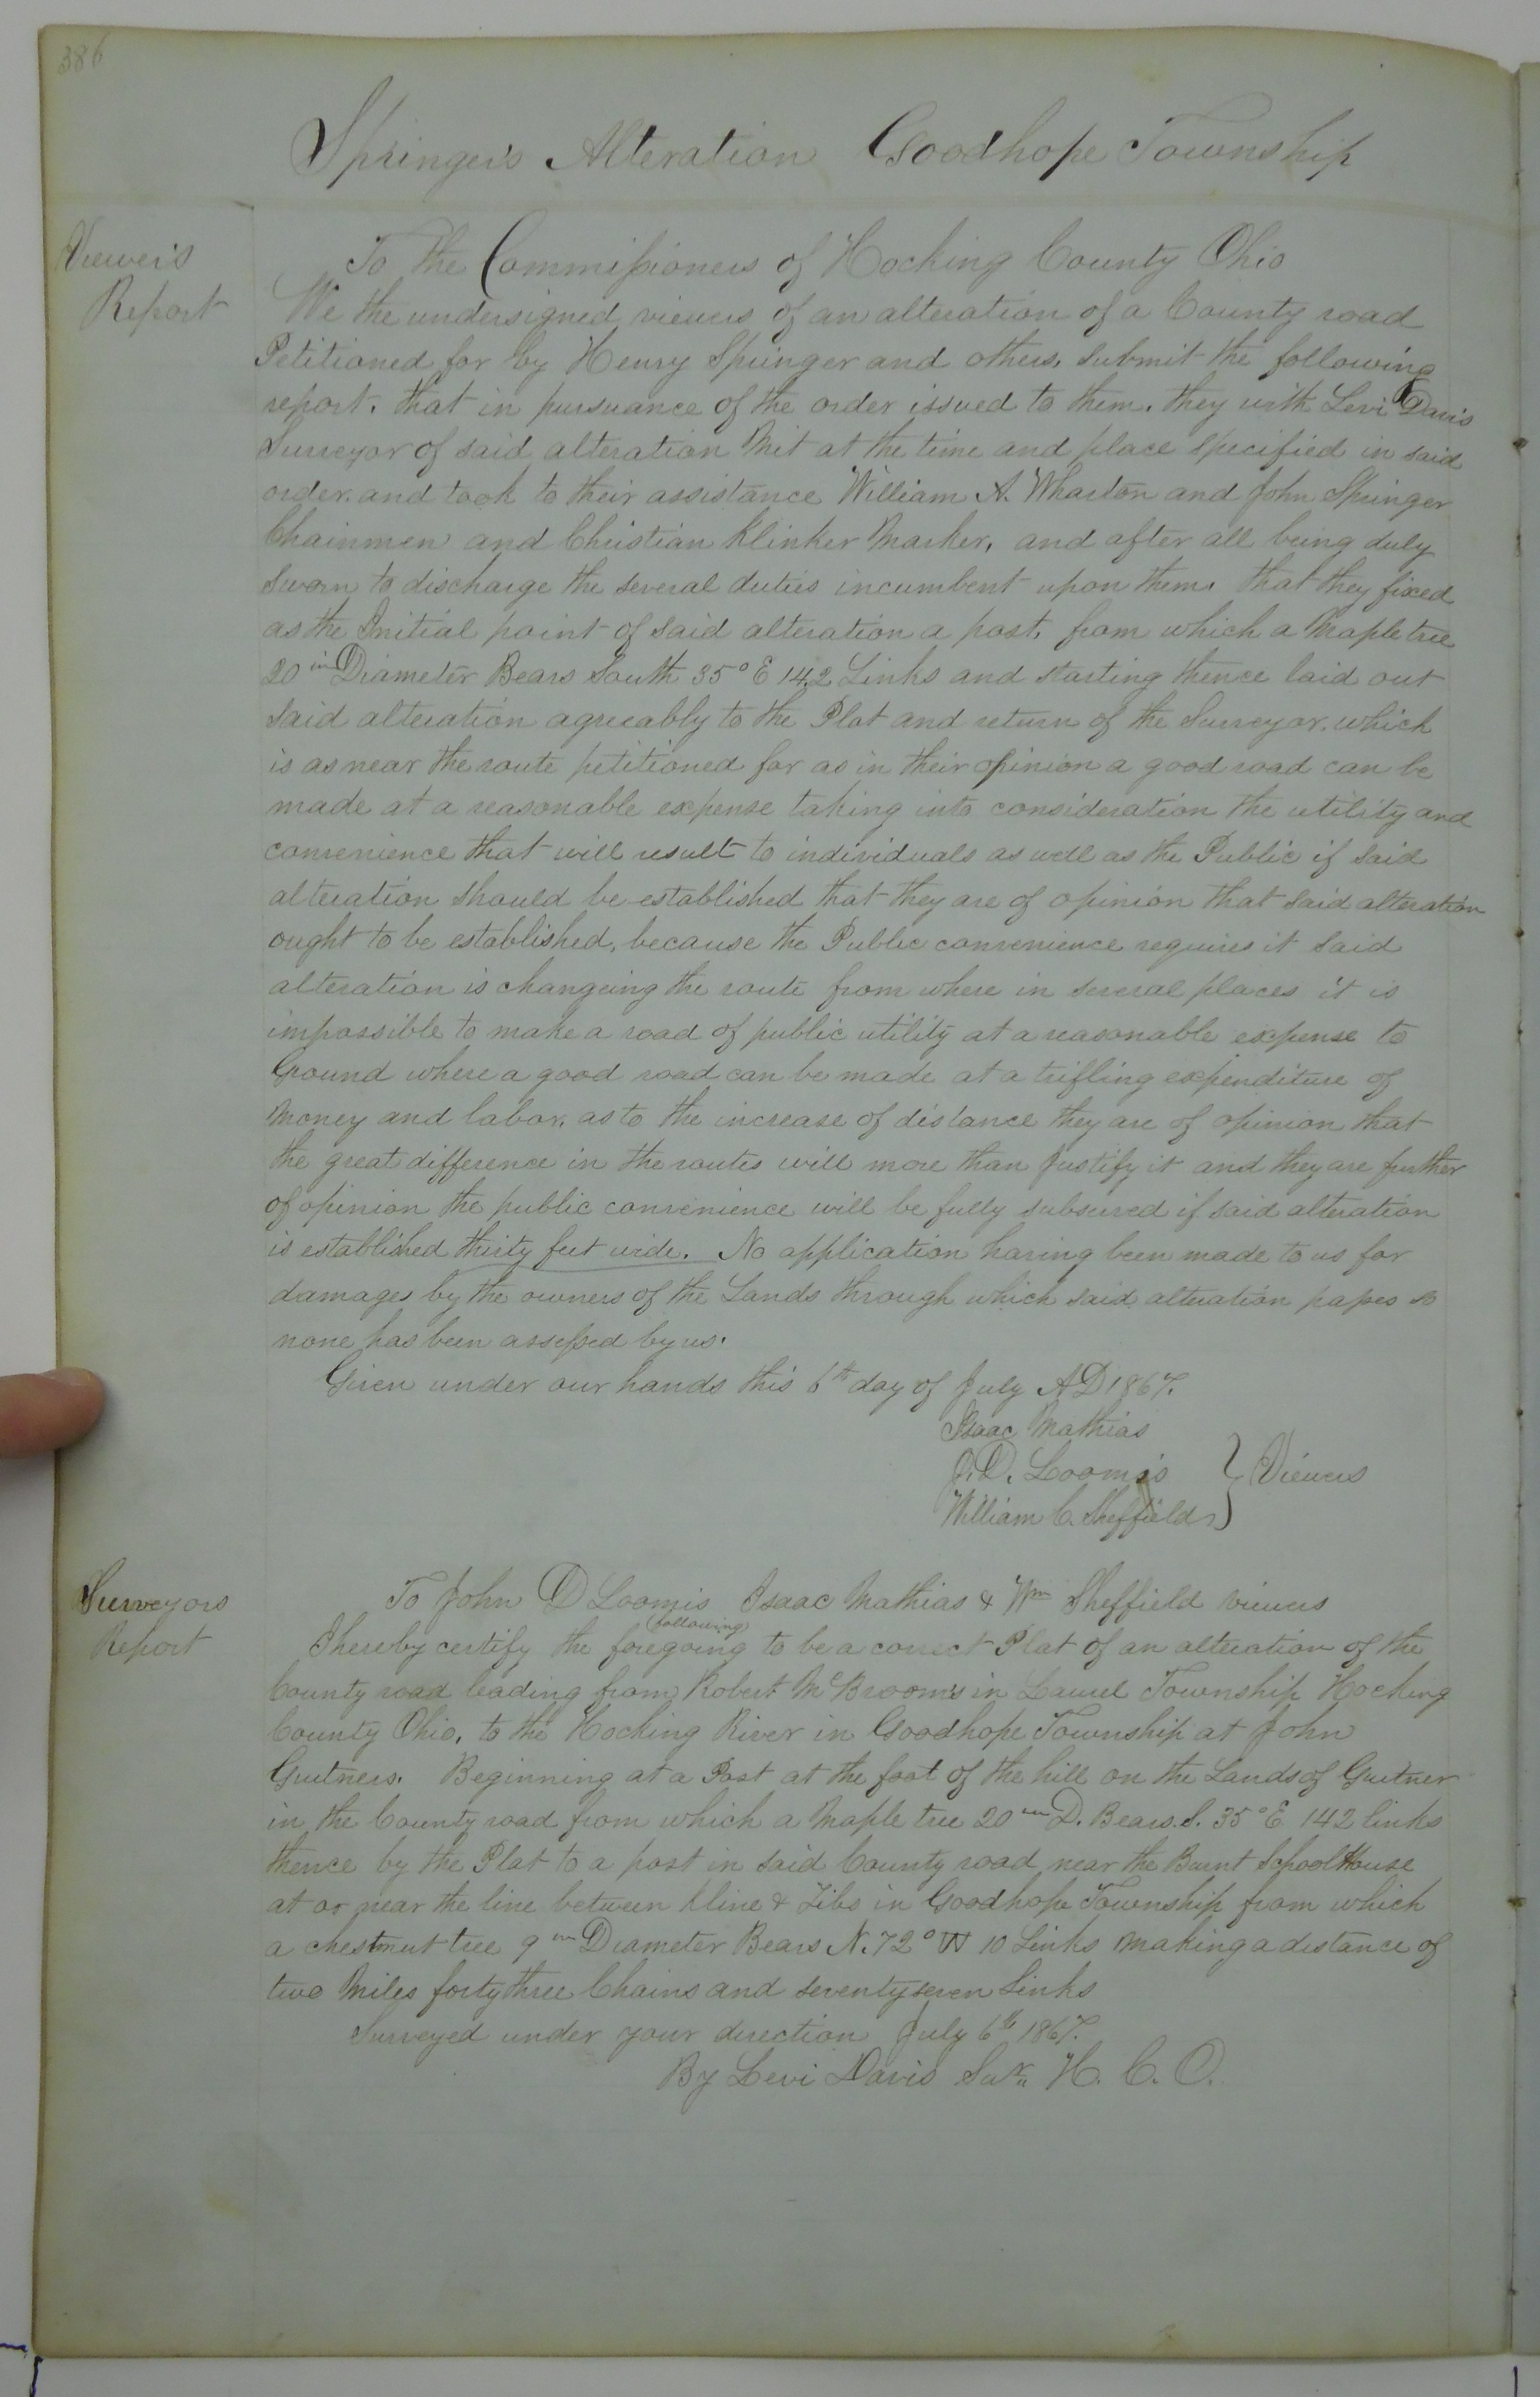 386
Springer's Alteration Goodhope Township
Viewer's
Report
To the Commissioners of Hocking County Ohio
We the undersigned viewers of an alteration of a County road
Petitioned for by Henry Springer and others, submit the following
report. that in pursuance of the order issued to them. they with Levi Davis
Surveyor of said alteration Met at the time and place specified in said
order. and took to their assistance William A. Wharton and John Springer
Chainmen and Christian Klinker Marker, and after all being duly
sworn to discharge the several duties incumbent upon them. that they fixed
as the Initial point of said alteration a post, from which a Maple tree
20 in Diameter Bears South 35° E 142 Links and starting thence laid out
said alteration agreeably to the Plat and return of the Surveyor. which
is as near the route petitioned for as in their opinion a good road can be
made at a reasonable expense taking into consideration the utility and
convenience that will result to individuals as well as the Public if said
alteration should be established that they are of opinion that said alteration
ought to be established, because the Public convenience requires it said
alteration is changeing the route from where in several places it is
impossible to make a road of public utility at a reasonable expense to
Ground where a good road can be made at a trifling expenditure of
Money and labor. as to the increase of distance they are of opinion that
the great difference in the routes will more than Justify it and they are further
of opinion the public convenience will be fully subserved if said alteration
is established thirty feet wide. No application having been made to us for
damages by the owners of the Lands through which said alteration passes so
none has been assessed by us.
Given under our hands this 6th day of July AD 1867.
Isaac Mathias
J. D. Loomis } Viewers
William C. Sheffield
Surveyors
Report
To John D Loomis Isaac Mathias & Wm Sheffield viewers
(following)
I hereby certify the foregoing to be a correct Plat of an alteration of the
County road leading from Robert McBroom's in Laurel Township Hocking
County Ohio, to the Hocking River in Goodhope Township at John
Guitners. Beginning at a Post at the foot of the hill on the Lands of Guitner
in the County road from which a Maple tree 20 in D. Bears. S. 35° E 142 links
thence by the Plat to a post in said County road near the Burnt School House
at or near the line between Kline & Zibs in Goodhope Township from which
a chestnut tree 9 in Diameter Bears N. 72° W 10 Links Making a distance of
two Miles forty three Chains and seventy seven Links
Surveyed under your direction July 6th 1867.
By Levi Davis Sur. H. C. O.